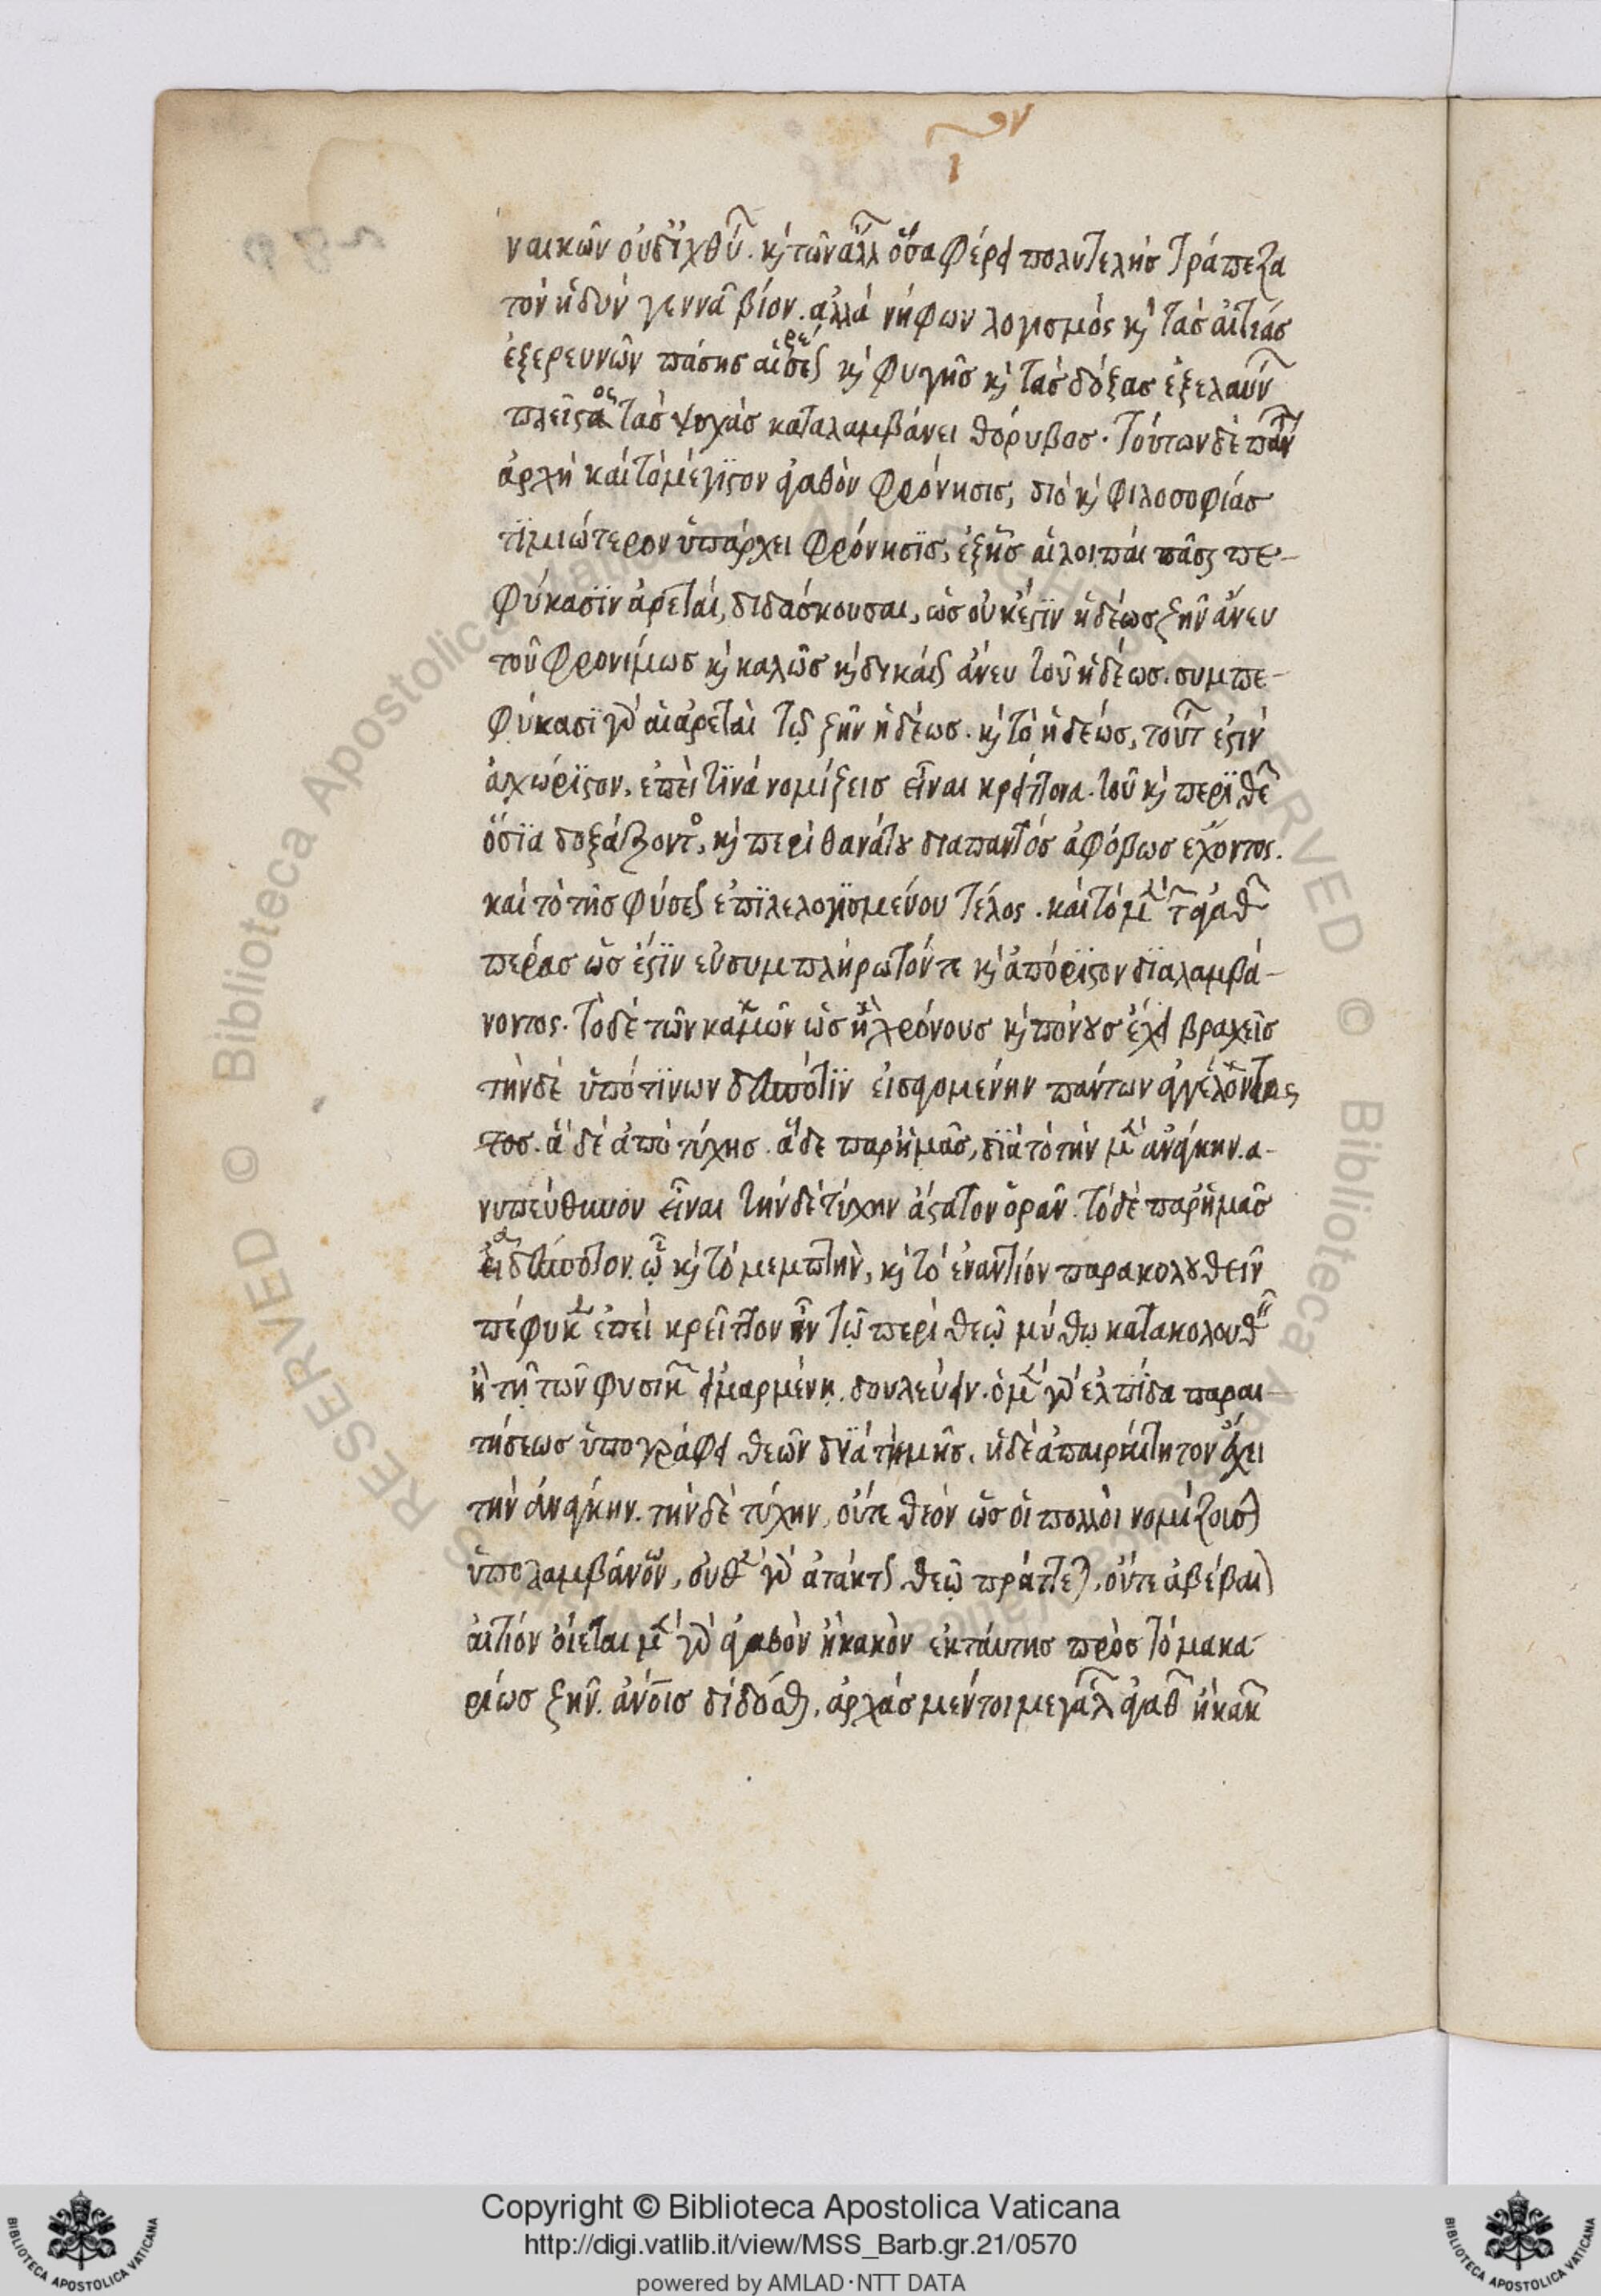 ναικῶν οὐδ' ἰχθύ. κ τῶν ἄλλ ὅσα φέρει πολυτελὴσ τράπεζα
τὸν ἡδὺν γεννᾶ βίον. ἀλλὰ νήφων λογισμὸς κ τὰσ αἰτίασ
ἐξερευνῶν πάσησ αἱρέσεως κ φυγῆσ κ τὰσ δόξασ ἐξελαύν
τὰσ ψυχὰσ καταλαμβάνει θόρυβοσ. τούτων δὲ πάν
ἀρχὴ καὶ τὸ μέγιστον ἀγαθὸν φρόνησισ, διὸ κ φιλοσοφίασ
τϊμιώτερον ὑπάρχει φρόνησϊσ, ἐξῆσ αἱ λοιπαὶ πᾶσαι πε-
φύκασϊν ἀρεταὶ, διδάσκουσαι, ὡσ οὐκ ἔστϊν ἡδέωσ ζῆν ἄνευ
τοῦ φρονίμωσ κ καλῶσ κ δικαίως ἄνευ τοῦ ἡδέωσ. συμπε-
φύκασϊ γὰρ αἱ ἀρεταὶ τῷ ζῆν ἡδέωσ. κ τὸ ἡδέωσ, τούτ ἐστιν
ἀχώρϊστον, ἐπεὶ τϊνὰ νομίζεισ εἶναι κρείττονα. τοῦ κ περὶ θε
ὅσϊα δοξάζοντο, κ περὶ θανάτου διαπαντόσ ἀφόβωσ ἔχοντος.
καὶ τὸ τῆσ φύσεως ἐπϊλελογϊσμένου τέλος. καὶ τὸ μὲν τ ἀγαθ
πέρασ ὡσ ἔστϊν εὐσυμπλήρωτόν τε κ ἀπόριστον διαλαμβά-
νοντος. τὸ δὲ τῶν κακῶν ὡσ ἢ χρόνουσ κ πόνουσ ἔχει βραχεῖσ
τὴν δὲ ὑπό τϊνων δεσπότϊν εἰσαγομένην πάντων ἀγγέλοντος
τοσ. ἃ δὲ ἀπὸ τύχησ. ἃ δὲ παρ' ἡμᾶσ, δϊὰ τὸ τὴν μὲν ἀνάγκην. α-
νυπεύθυνον εἶναι τὴν δὲ τύχην ἄστατον ὁρᾶν. τὸ δὲ παρ' ἡμᾶσ
ἀδέσποτον. ᾧ κ τὸ μεμπτὴν, κ τὸ ἐναντίον παρακολουθεῖν
πέφυκεν ἐπεὶ κρεῖττον ἦν τῷ περὶ θεῶ μύθῳ κατακολουθ
ἢ τῇ τῶν φυσικ εἱμαρμένῃ δουλεύειν. ὁ μὲν γὰρ ἐλπίδα παραι-
τήσεωσ ὑπογράφει θεῶν δϊὰ τιμῆσ. ἡ δὲ ἀπαραίτητον ἔχει
τὴν ἀνάγκην. τὴν δὲ τύχην, οὔτε θεὸν ὡσ οἱ πολλοὶ νομίζουσι
ὑπολαμβάνων, οὐθὲν γὰρ ἀτάκτως θεῷ πράττεται, οὔτε ἀβέβαι
αἰτίον οἴεται μὲν γὰρ ἀγαθὸν ἢ κακὸν ἐκ ταύτησ πρὸσ τὸ μακα-
ρίωσ ζῆν. ἀνοισ δίδοσθαι, ἀρχὰσ μέντοι μεγάλ ἀγαθ ἢ κακ
Copyright © Biblioteca Apostolica Vaticana
http://digi.vatlib.it/view/MSS_Barb.gr.21/0570
powered by AMLAD·NTT DATA